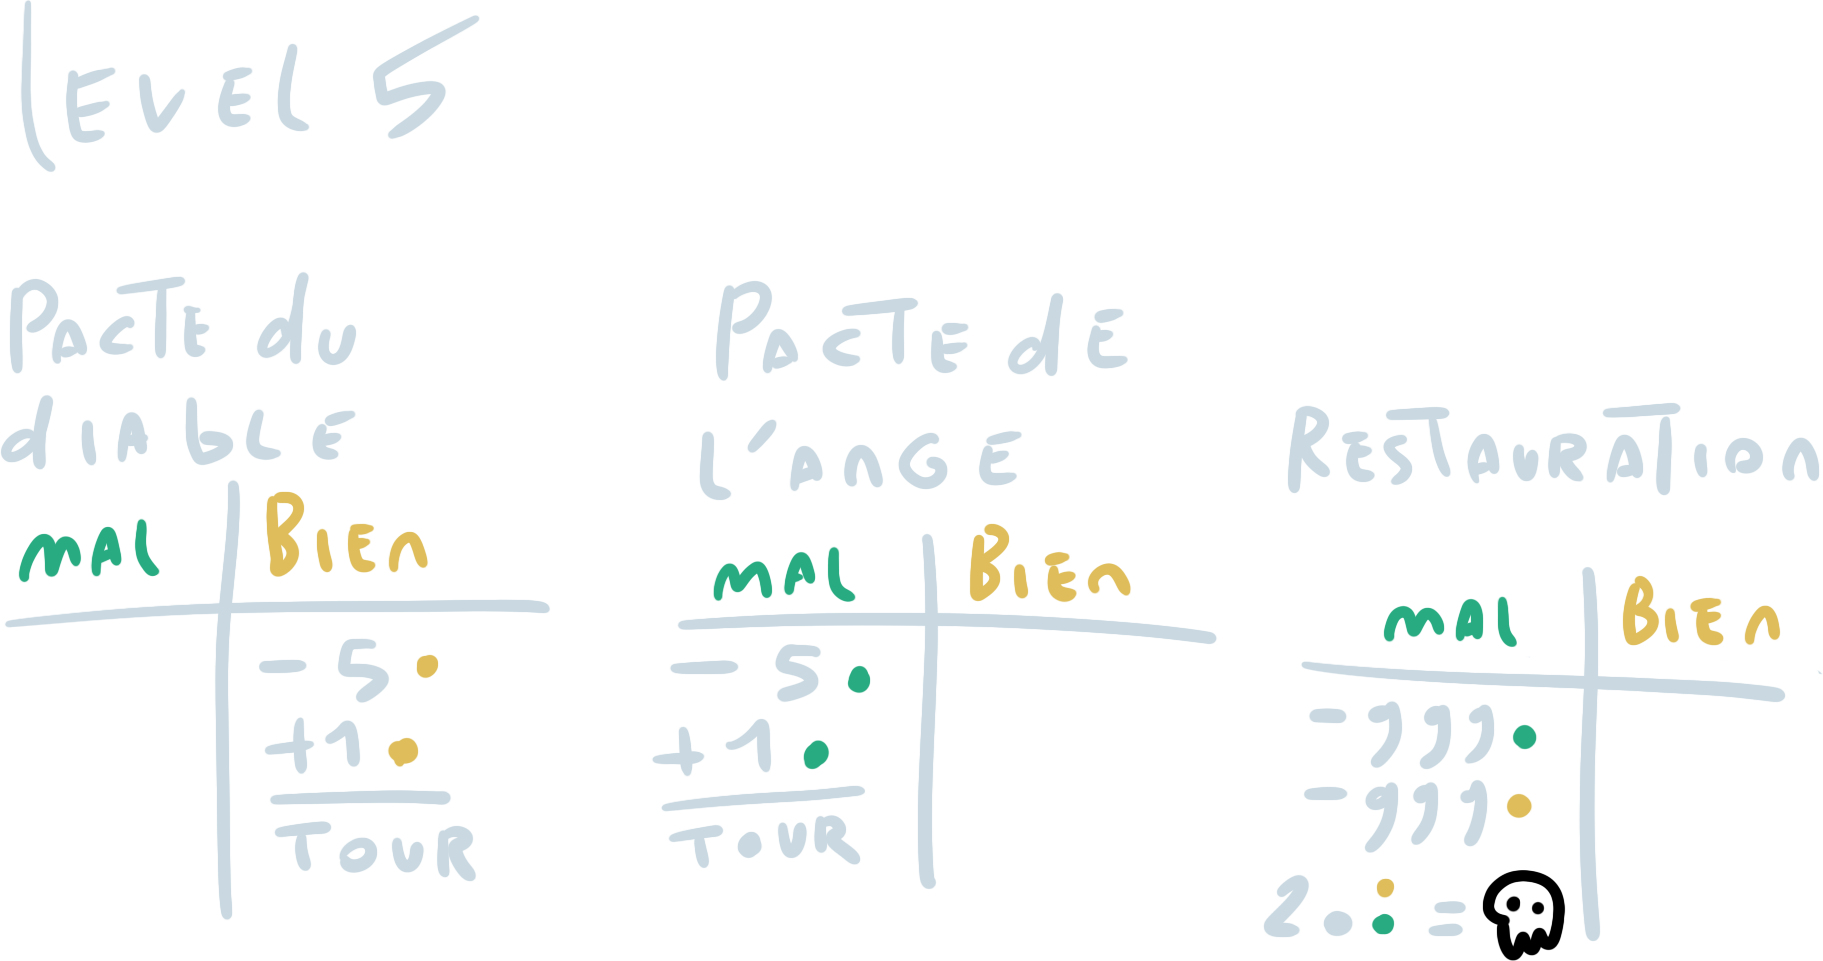 LEVEL 5
PACTE du
diAbLE
MAL BIEn
- 5 •
+1 •
TOUR
PACTE dE
L'AnGE
MAL BIEn
- 5 •
+1 •
TOUR
RESTAURATIOn
MAL BIEn
- 999 •
- 999 •
2 • : =